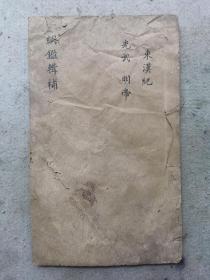 東漢紀
光武 明帝
綱鑑輯補